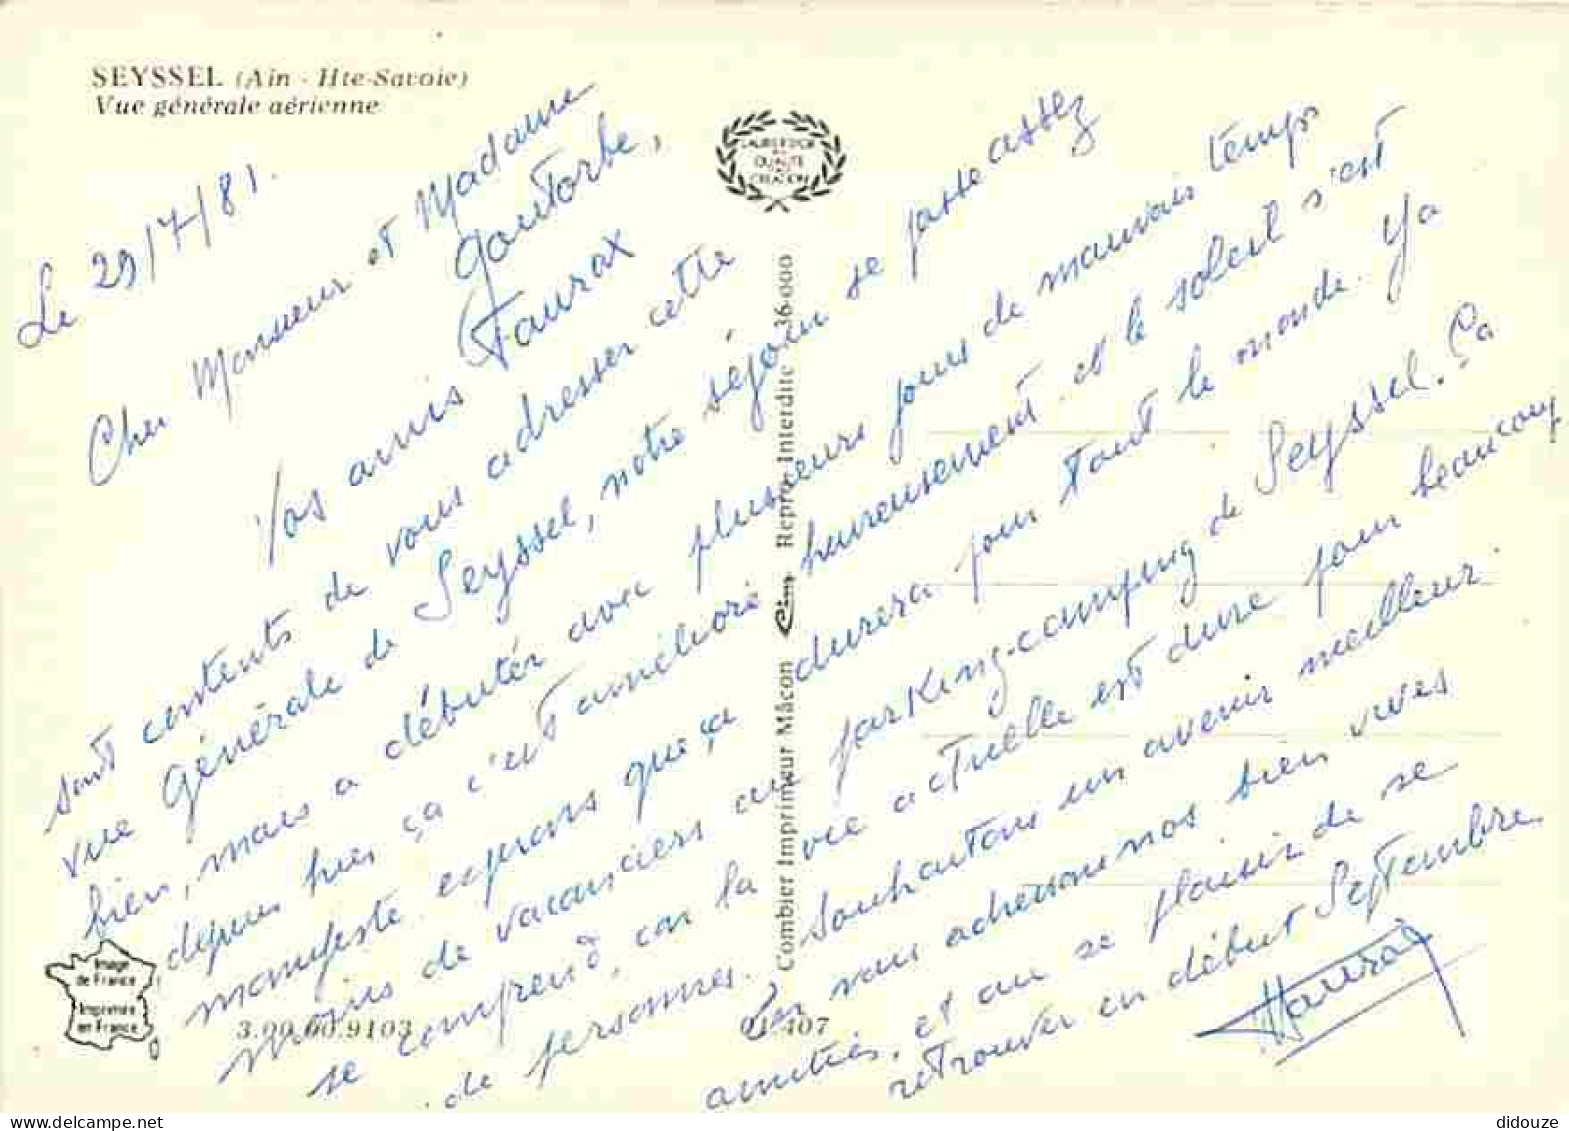 SEYSSEL (Ain - Hte-Savoie)
Vue générale aérienne
LAURIER D'OR
DE
QUALITÉ
CRÉATION
Le 29/7/81.
Cher Monsieur et Madame
Goutorbe,
Vos amis Faurax
sont contents de vous adresser cette
vue générale de Seyssel, notre séjour se passe assez
bien, mais a débuter avec plusieurs jours de mauvais temps
depuis hier ça c'est amélioré heureusement et le soleil s'est
manifesté espérons que ça durera pour tout le monde. Y a
moins de vacanciers au parking-camping de Seyssel. Ça
se comprend, car la vie actuelle est dure pour beaucoup
de personnes. Souhaitons un avenir meilleur
vous adressons nos bien vives
amitiés, et au plaisir de se
retrouver en début Septembre.
Faurax
Combier Imprimeur Mâcon Cim Repro. Interdite 36-000
Image
de France
Imprimée
en France
3.00.60.9103
01-407
didouze